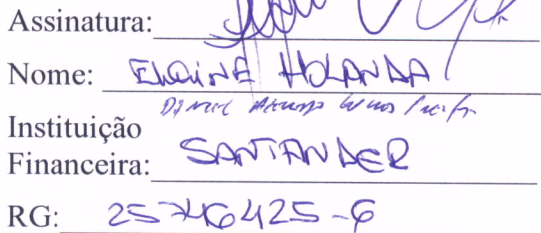 Assinatura:
Nome: ELAINE HOLANDA
DANIEL
Instituição
Financeira: SANTANDER
RG: 25746425-6